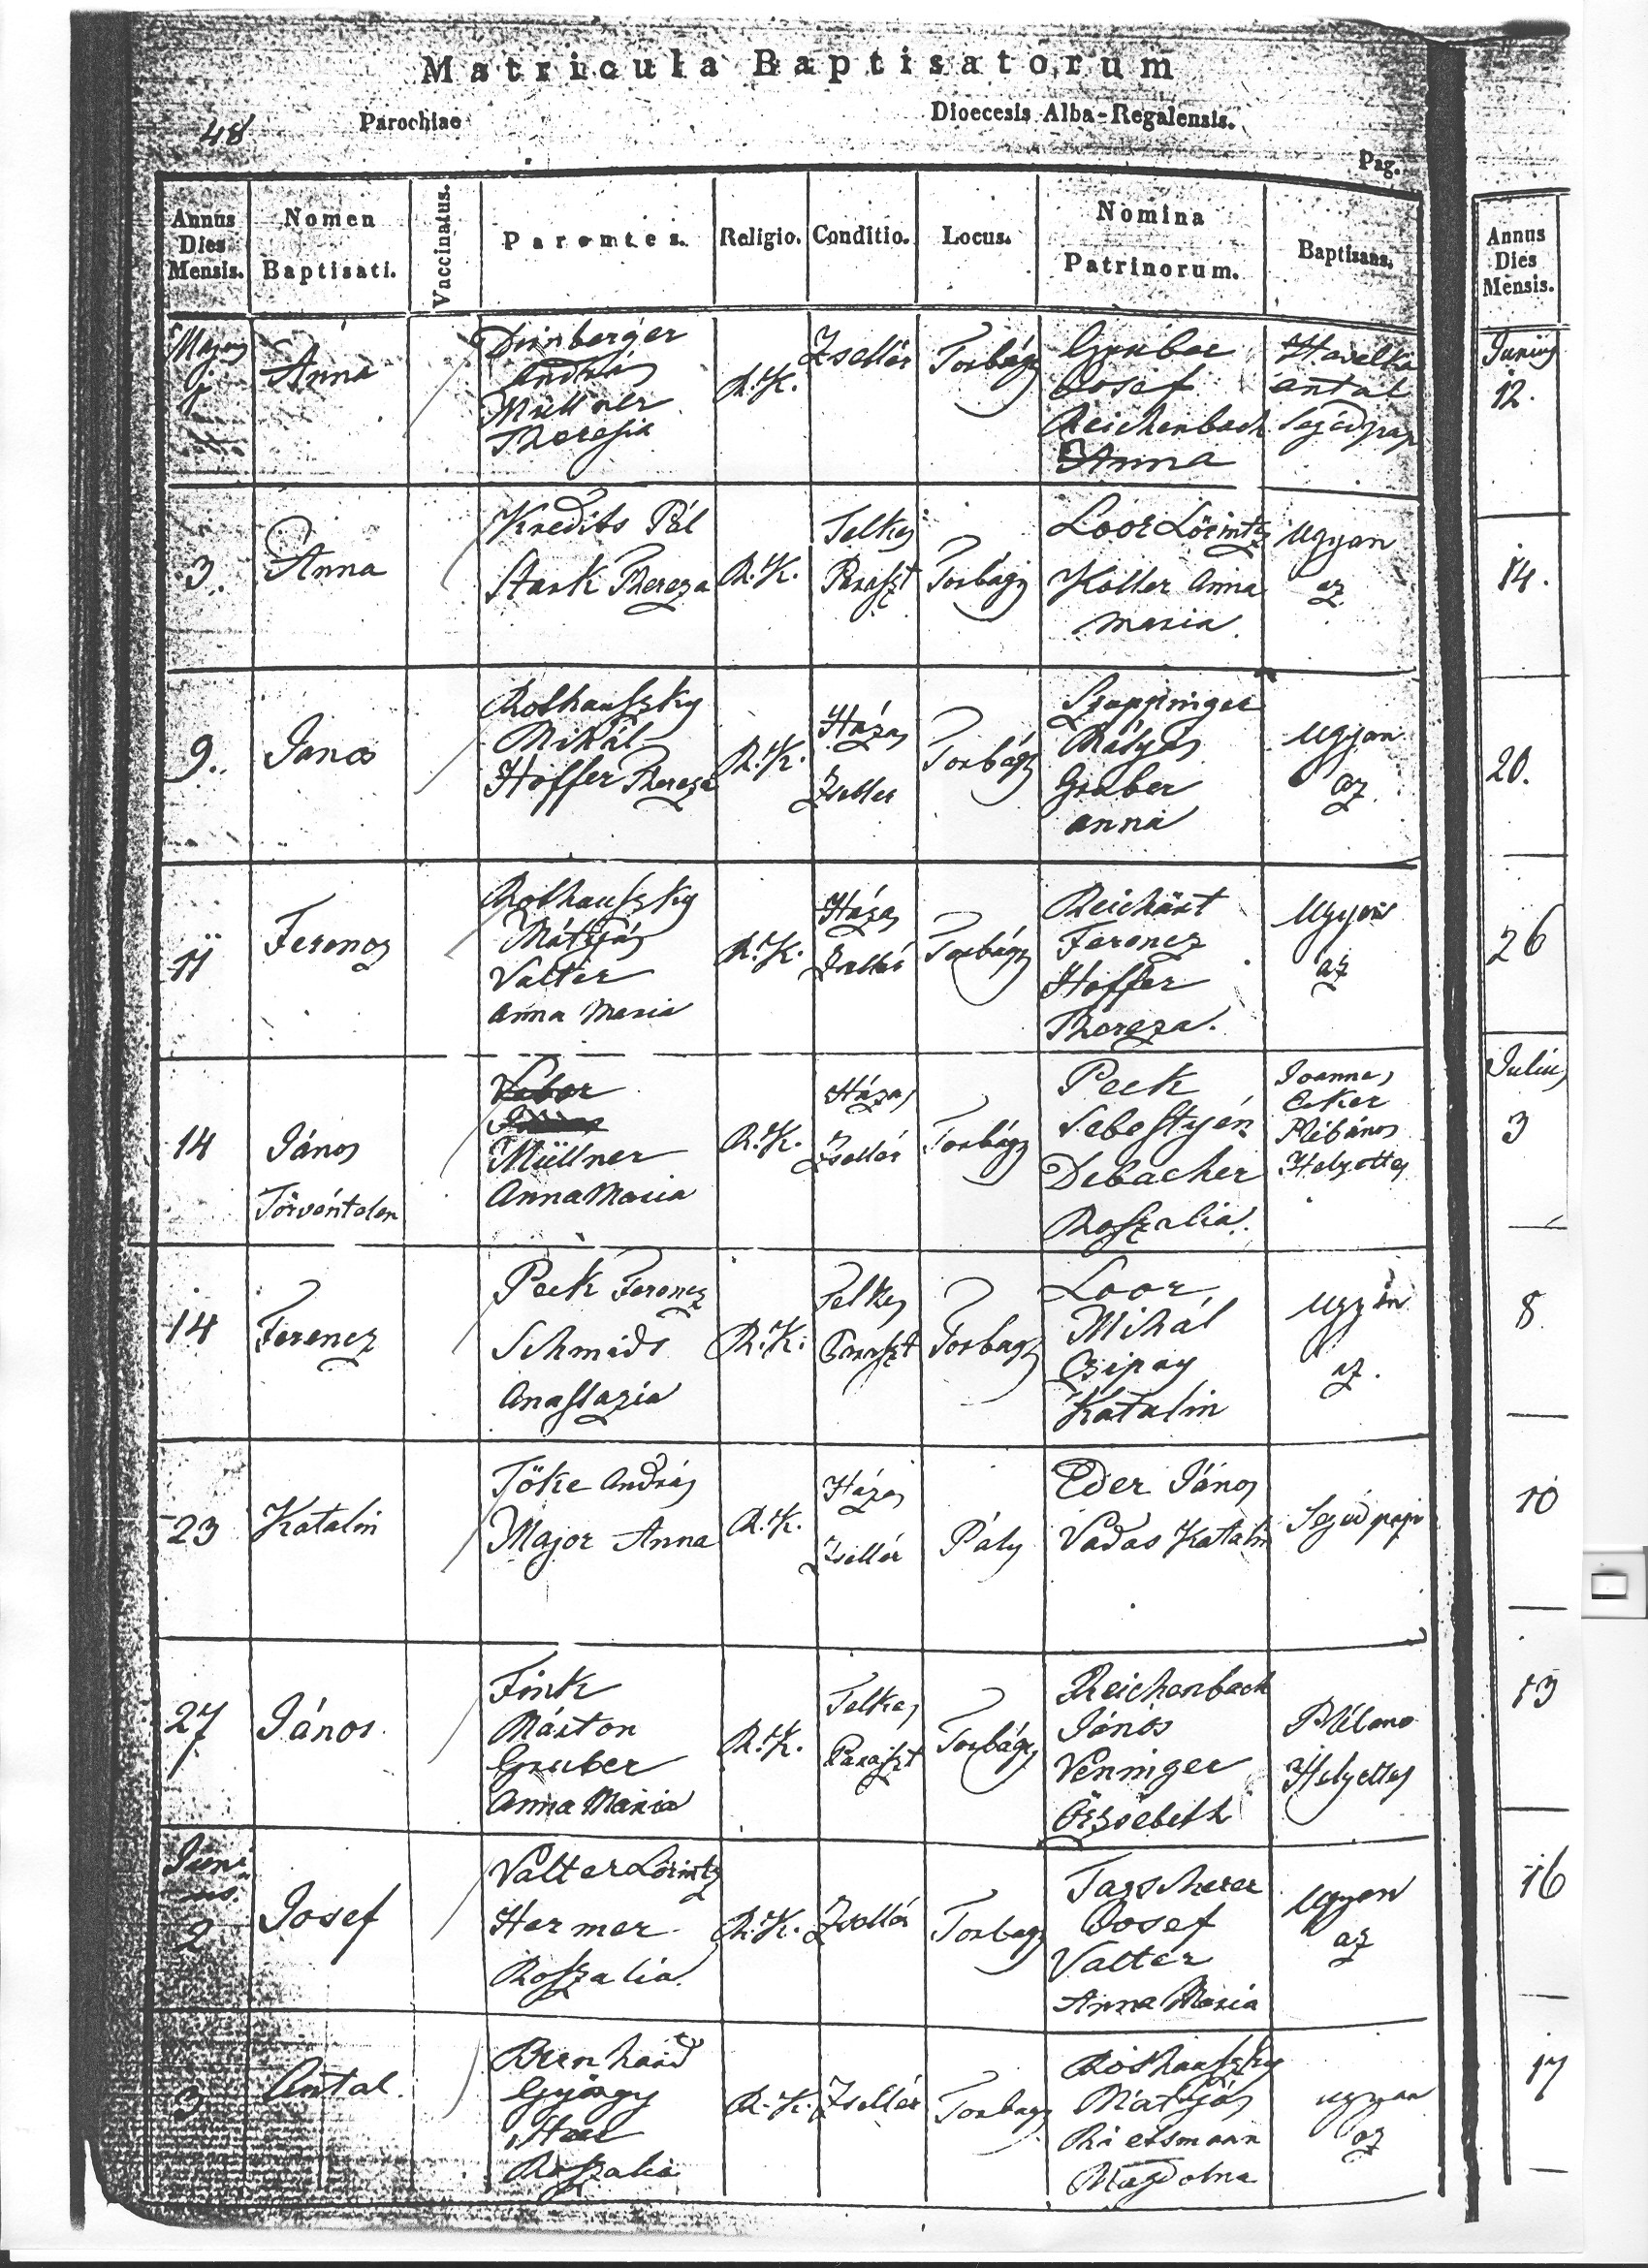 Matricula Baptisatorum
48 Parochiae Dioecesis Alba-Regalensis.
Pag.
Annus Dies Mensis.
Nomen Baptisati.
Vaccinatus.
Parentes.
Religio.
Conditio.
Locus.
Nomina Patrinorum.
Baptisans.
Majus
Anna
András
Müllner
Theresia
R.K.
Zsellér
Torbágy
Gruber
Josef
Reichenbach
Anna
Antal
Segédpap
3.
Anna
Kredits Pál
Stark Thereza
R.K.
Telkes
Paraszt
Torbágy
Loor Lörintz
Koller Anna
Maria
Ugyan
az
9.
Janos
Rothauszky
Mihál
Hoffer Thereza
R.K.
Házas
Zseller
Torbágy
Mátyás
Gruber
Anna
Ugyan
az
11
Ferencz
Rothauszky
Mátyás
Valter
Anna Maria
R.K.
Házas
Zsellér
Torbágy
Reichárt
Ferencz
Hoffer
Thereza.
Ugyan
az
14
János
Törvéntelen
Müllner
Anna Maria
R.K.
Házas
Zsellér
Torbágy
Peck
Sebestyén
Debacher
Roszalia.
Joannes
Plébános
Helyettes
14
Ferencz
Peck Ferencz
Schmidt
Anastazia
R.K.
Telkes
Paraszt
Torbagy
Loor
Mihál
Katalin
Ugyan
az.
23
Katalin
Töke András
Major Anna
R.K.
Házas
Zsellér
Páty
Eder János
Vadas Katalin
Segéd pap
27
János.
Fink
Márton
Gruber
Anna Maria
R.K.
Telkes
Paraszt
Torbágy
Reichenbach
János
Venninger
Örzsebeth
Plébano
Helyettes
Juni
us.
2
Josef
Valter Lörintz
Hermer
Roszalia.
R.K.
Zsellér
Torbagy
Josef
Valter
Anna Maria
Ugyan
az
3
Antal.
Bernhard
György
Roszalia
R.K.
Zsellér
Torbagy
Rothauszky
Mátyás
Magdolna
ugyan
az
Annus Dies Mensis.
Junius
12.
14.
20.
26
Julius
3
8
10
13
16
17